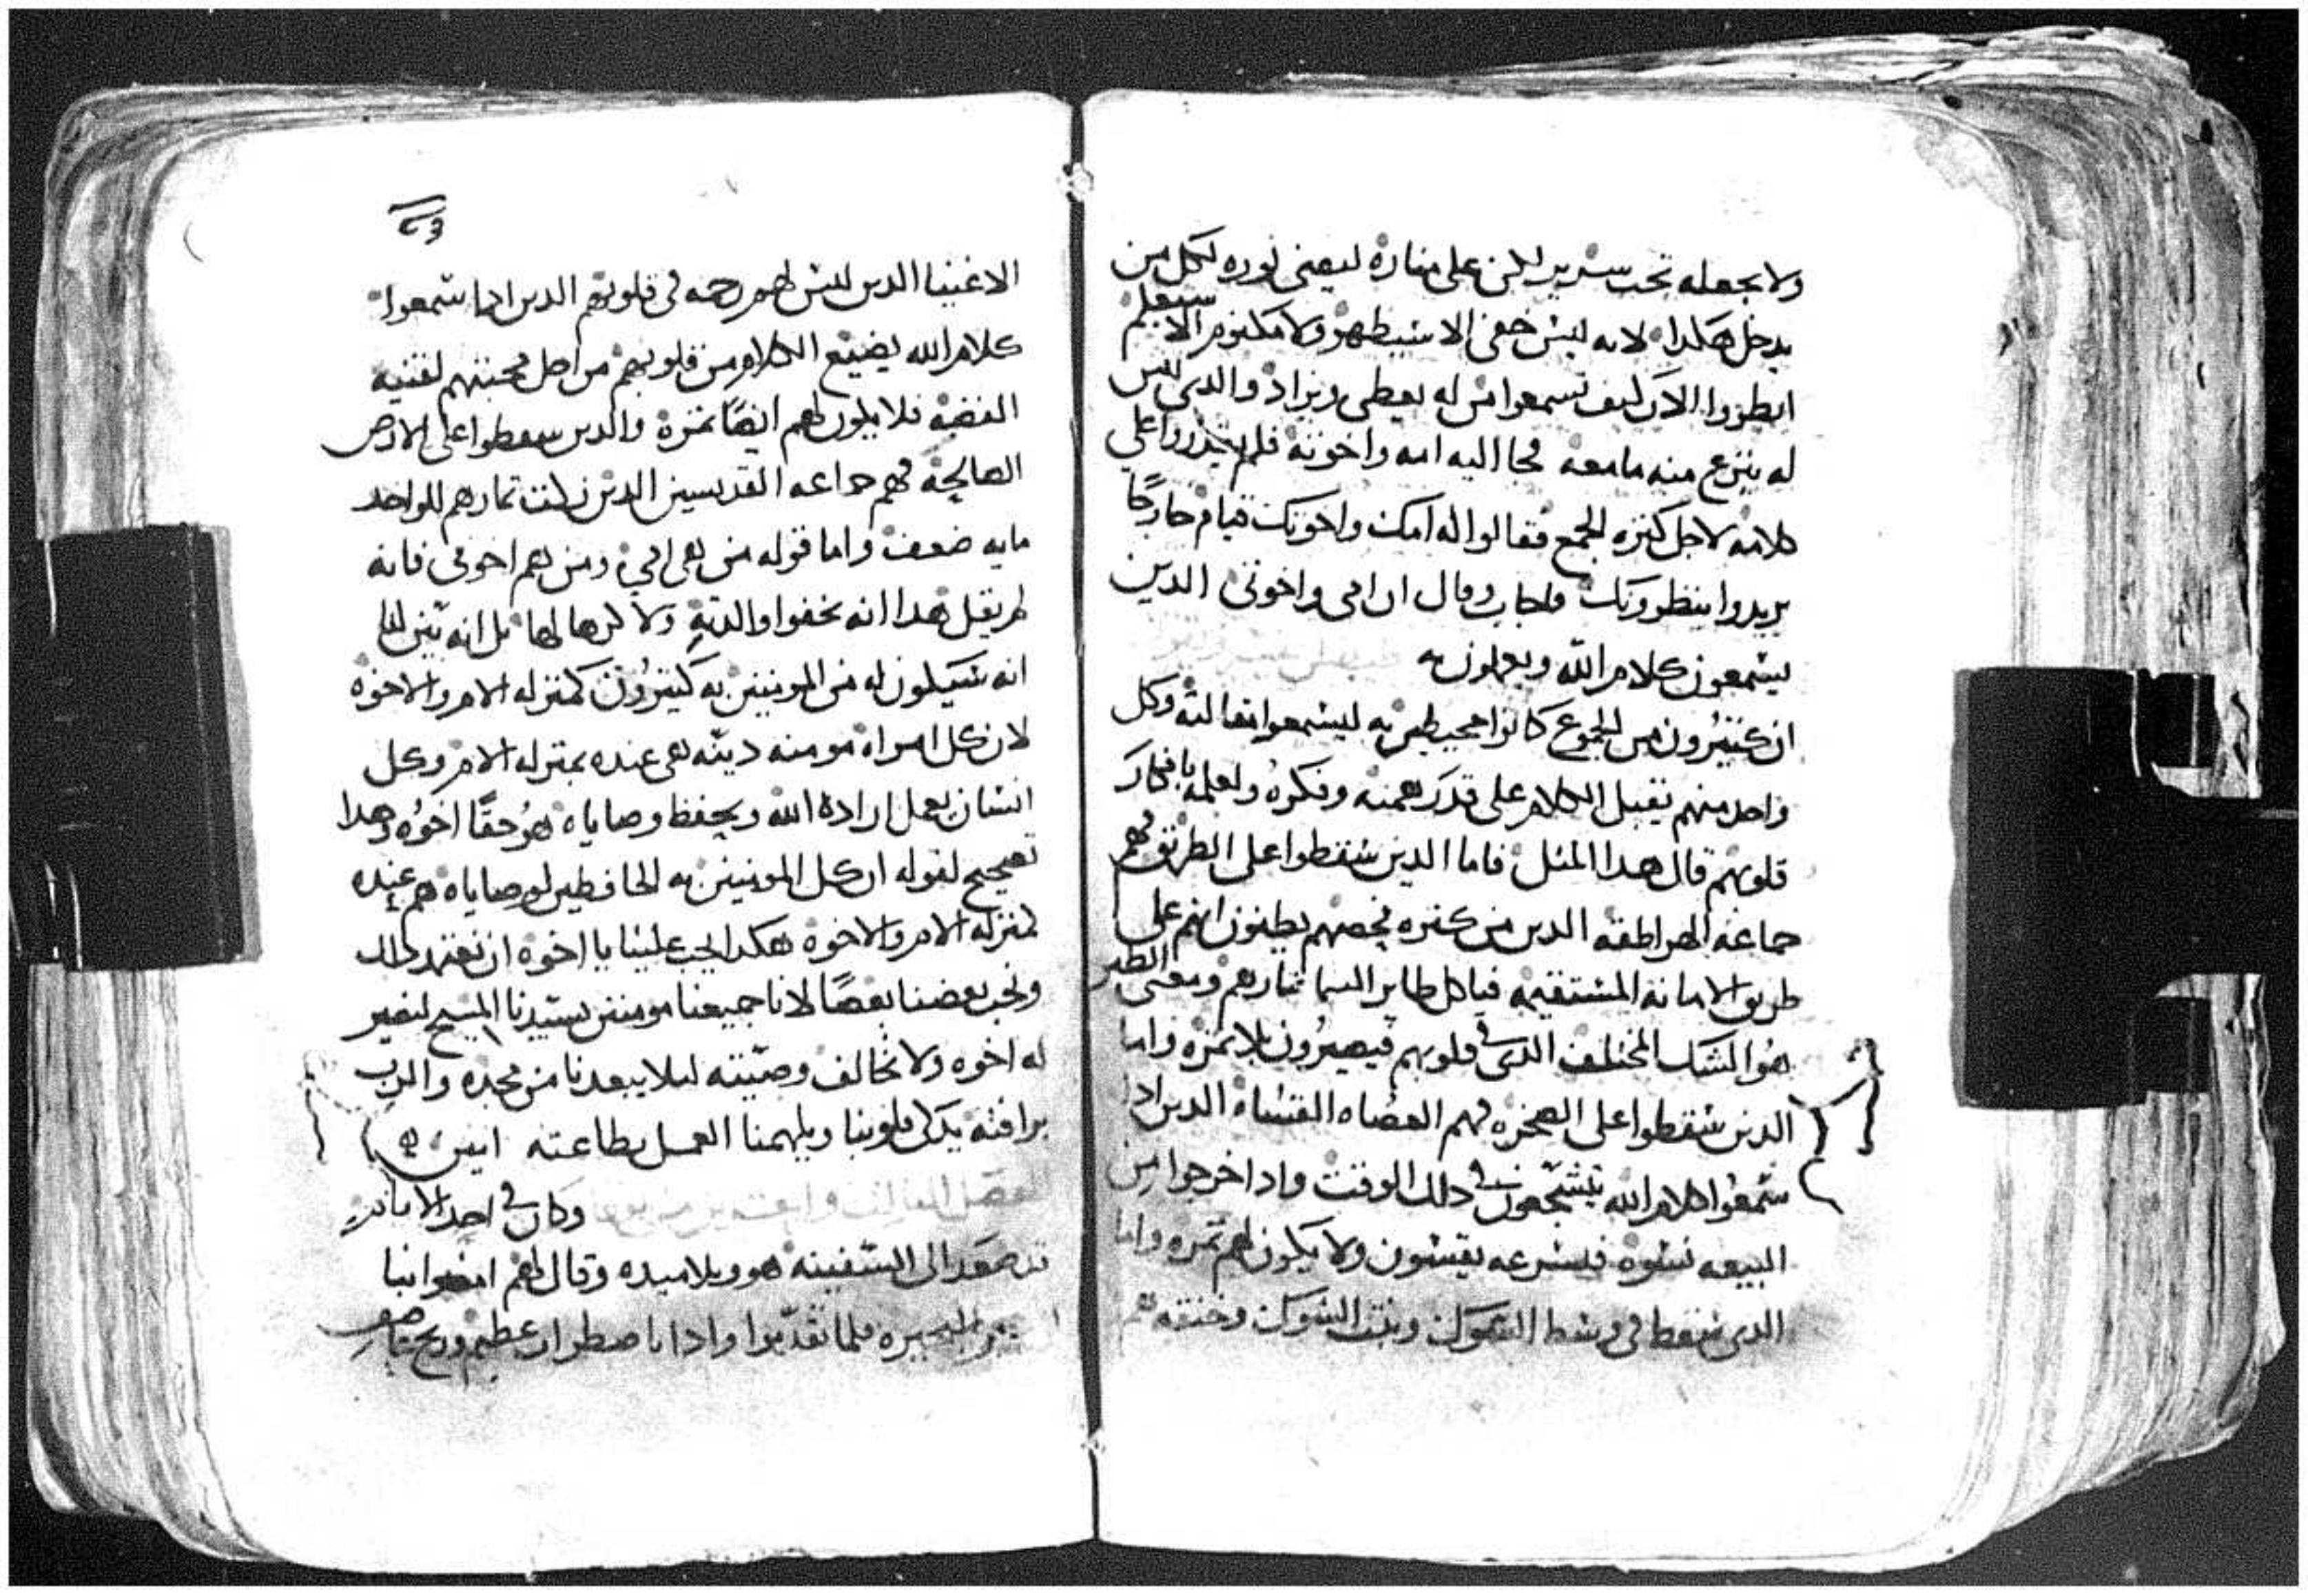 ولا يجعله تحت سرير لكن على مناره ليضي نوره لكل من
يدخل هكدا لانه ليس خفي الا سيظهر ولا مكتوم الا سيعلم
انظروا الان كيف تسمعوا من له يعطى ويزاد والدى ليس
له ينزع منه مامعه فجا اليه امه واخوته فلم يقدروا على
كلامه لاجل كتره الجمع فقالوا له امك واخوتك قيام خارجًا
يريدوا ينظرونك فاجاب وقال ان امى واخوتى الدين
يسمعون كلام الله ويعملون به
ان كتيرون من الجموع كانوا محيطين به ليسمعوا تعاليمه وكل
واحد منهم يقبل الكلام على قدر همته وفكره ولعلمه بافكار
قلوبهم قال هدا المتل فاما الدين سقطوا على الطريق فهم
جماعة الهراطقه الدين من كتره فحصهم يظنون انهم على
طريق الامانه المستقيمه فياكل طاير السما تمارهم ومعنى الطير
هو الشك المختلف الدى فى قلوبهم فيصيرون بلا تمره واما
الدين سقطوا على الصخره فهم العصاه القساه الدين ادا
سمعوا كلام الله يتشجعون فى دلك الوقت وادا خرجوا من
البيعه نسوه فبسرعه يقسون ولا يكون لهم تمره واما
الدى سقط فى وسط الشوك ونبت الشوك وخنقه هم
الاغنيا الدين ليس لهم رحمه فى قلوبهم الدين ادا سمعوا
كلام الله يضيع الكلام من قلوبهم من اجل محبتهم لقنيه
الفضه فلا يكون لهم ايضًا تمره والدين سقطوا على الارض
الصالحة فهم جماعه القديسين الدين كانت تمارهم للواحد
مايه ضعف واما قوله من هى امى ومن هم اخوتى فانه
لم يقل هدا انه تخفوا والدته ولا كرها لها بل انه بين لنا
انه سيكون له من المومنين به كتيرون كمنزله الام والاخوه
لان كل امراه مومنه دينه هى عنده بمنزله الام وكل
انسان يعمل اراده الله ويحفظ وصاياه هو حقًا اخوه وهدا
تصحيح لقوله ان كل المومنين به الحافطين لوصاياه هم عنده
كمنزله الام والاخوه هكدا يجب علينا يا اخوه ان نعتمد دلك
ونحب بعضنا بعضًا لانا جميعنا مومنين بسيدنا المسيح لنصير
له اخوه ولا نخالف وصيته ليلا يبعدنا من مجده والرب
برافته يدكى قلوبنا ويلهمنا العمل بطاعته امين
وكان فى احد الايام
صعد الى السفينه هو وتلاميده وقال لهم امضوا بنا
عبر البحيره فلما تقدموا وادا باضطراب عظيم وريح عاصف